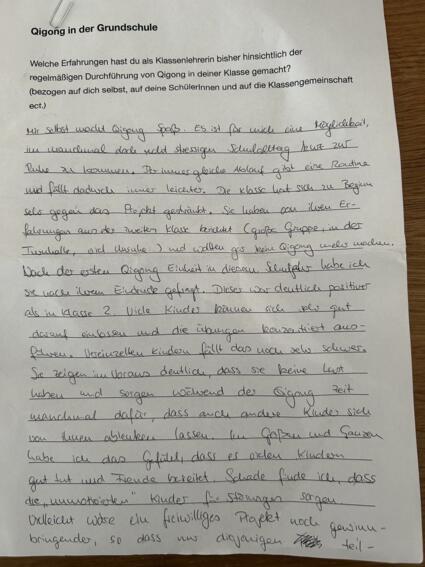 Qigong in der Grundschule
Welche Erfahrungen hast du als Klassenlehrerin bisher hinsichtlich der
regelmäßigen Durchführung von Qigong in deiner Klasse gemacht?
(bezogen auf dich selbst, auf deine SchülerInnen und auf die Klassengemeinschaft
ect.)
Mir selbst macht Qigong Spaß. Es ist für mich eine Möglichkeit,
im manchmal doch recht stressigen Schulalltag kurz zur
Ruhe zu kommen. Der immergleiche Ablauf gibt eine Routine
und fällt dadurch immer leichter. Die Klasse hat sich zu Beginn
sehr gegen das Projekt gesträubt. Sie haben von ihren Er-
fahrungen aus der zweiten Klasse berichtet (große Gruppe, in der
Turnhalle, viel Unruhe) und wollten gar kein Qigong mehr machen.
Nach der ersten Qigong Einheit in diesem Schuljahr habe ich
sie nach ihrem Eindruck gefragt. Dieser war deutlich positiver
als in Klasse 2. Viele Kinder können sich sehr gut
darauf einlassen und die Übungen konzentriert aus-
führen. Vereinzelten Kindern fällt das noch sehr schwer.
Sie zeigen im Voraus deutlich, dass sie keine Lust
haben und sorgen während der Qigong Zeit
manchmal dafür, dass auch andere Kinder sich
von ihnen ablenken lassen. Im Großen und Ganzen
habe ich das Gefühl, dass es vielen Kindern
gut tut und Freude bereitet. Schade finde ich, dass
die „unmotivierten" Kinder für Störungen sorgen
Vielleicht wäre ein freiwilliges Projekt noch gewinn-
bringender, so dass nur diejenigen teil-